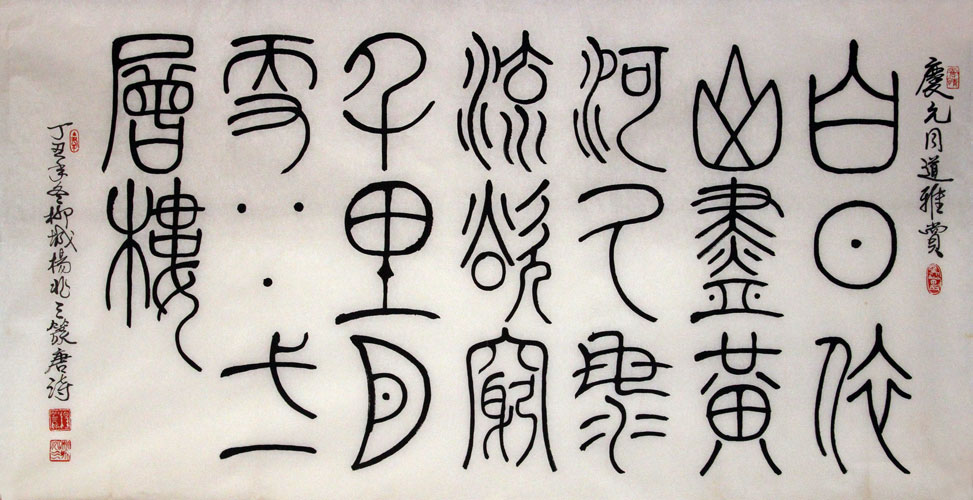 慶元同道雅賞
白日依
山盡黃
河入海
流欲窮
千里目
更上弌
層樓
丁丑年冬柳城楊兆三篆唐詩